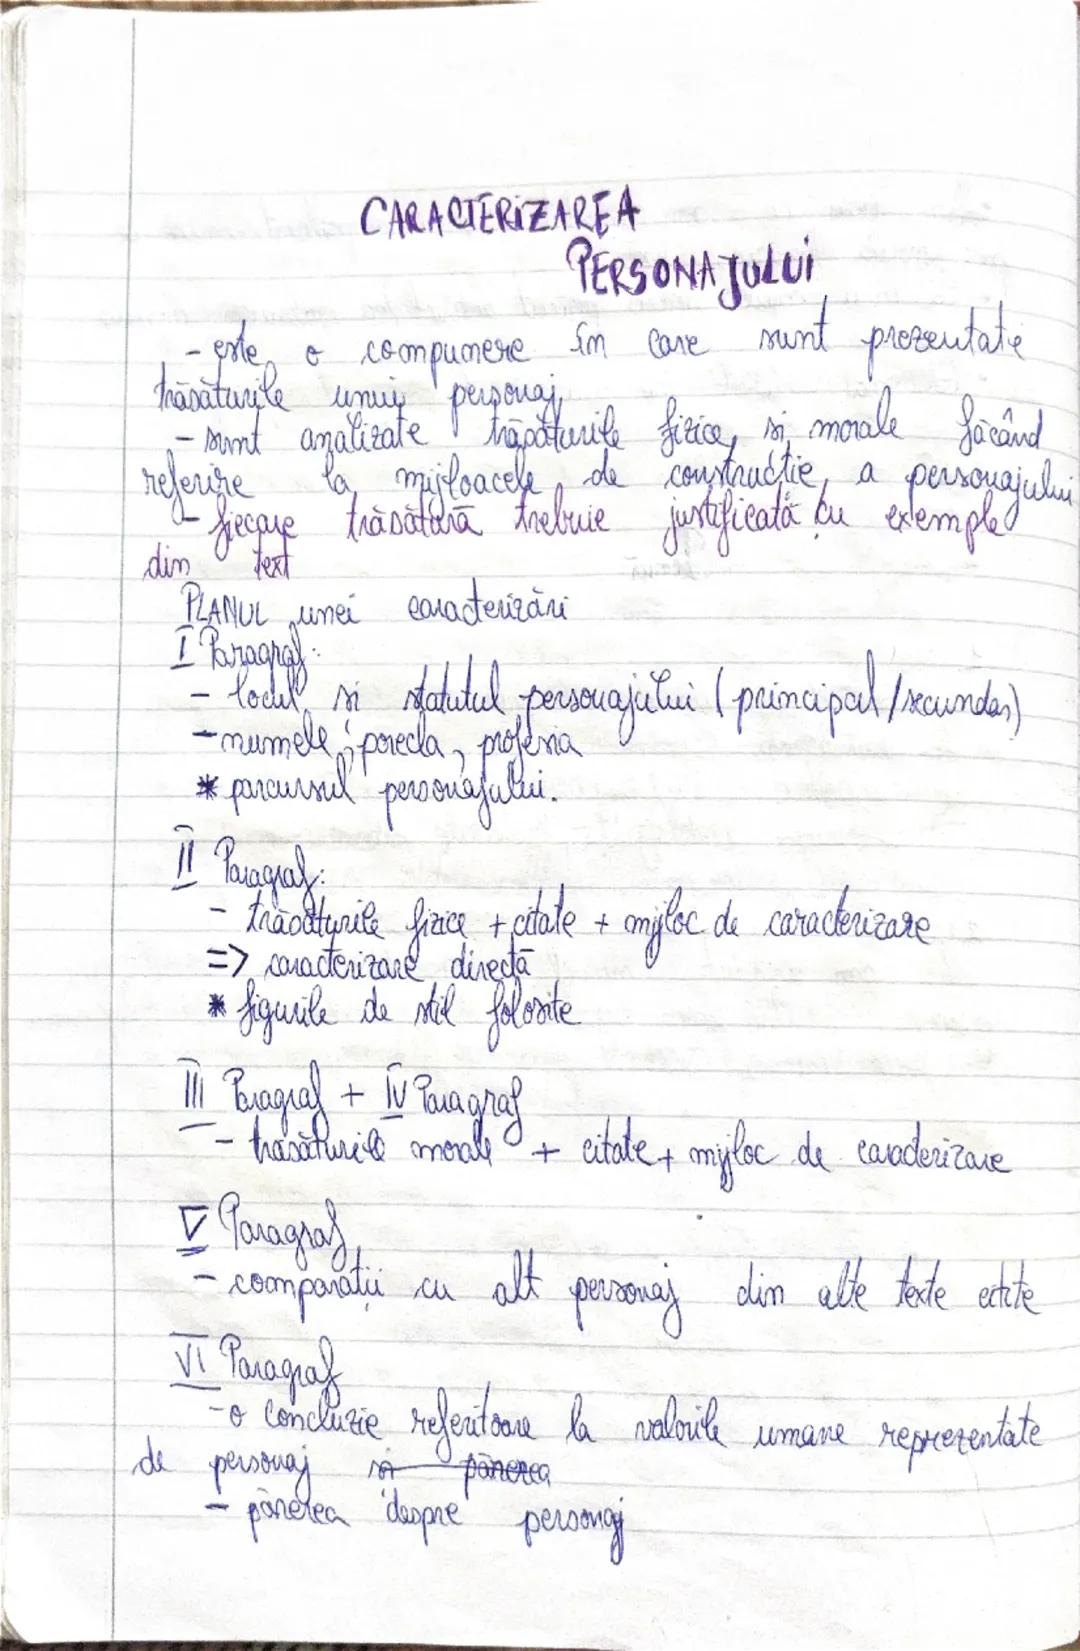 CARACTERIZAREA
PERSONAJULUI
- este o compunere în care sunt prezentate
trăsăturile unui personaj
- sunt analizate trăsăturile fizice și morale făcând
referire la mijloacele de construcție a personajului
- fiecare trăsătură trebuie justificată cu exemple
din text
PLANUL unei caracterizări
I Paragraf:
- locul și statutul personajului (principal/secundar)
- numele, porecla, profesia
* parcursul personajului.
II Paragraf:
- trăsăturile fizice + citate + mijloc de caracterizare
=> caracterizare directă
* figurile de stil folosite
III Paragraf + IV Paragraf
- trăsăturile morale + citate + mijloc de caracterizare
V Paragraf
- comparații cu alt personaj din alte texte
VI Paragraf
- o concluzie referitoare la valorile umane reprezentate
de personaj și părerea
- părerea despre personaj